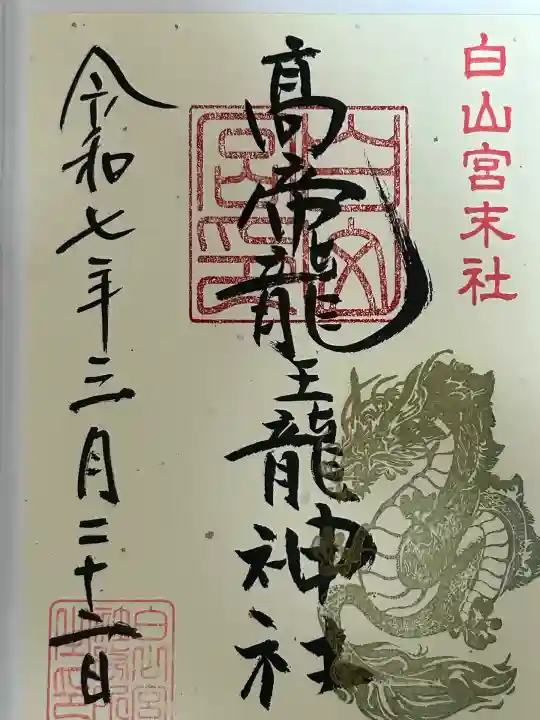 白山宮末社
髙帝龍王龍神社
令和七年三月二十二日